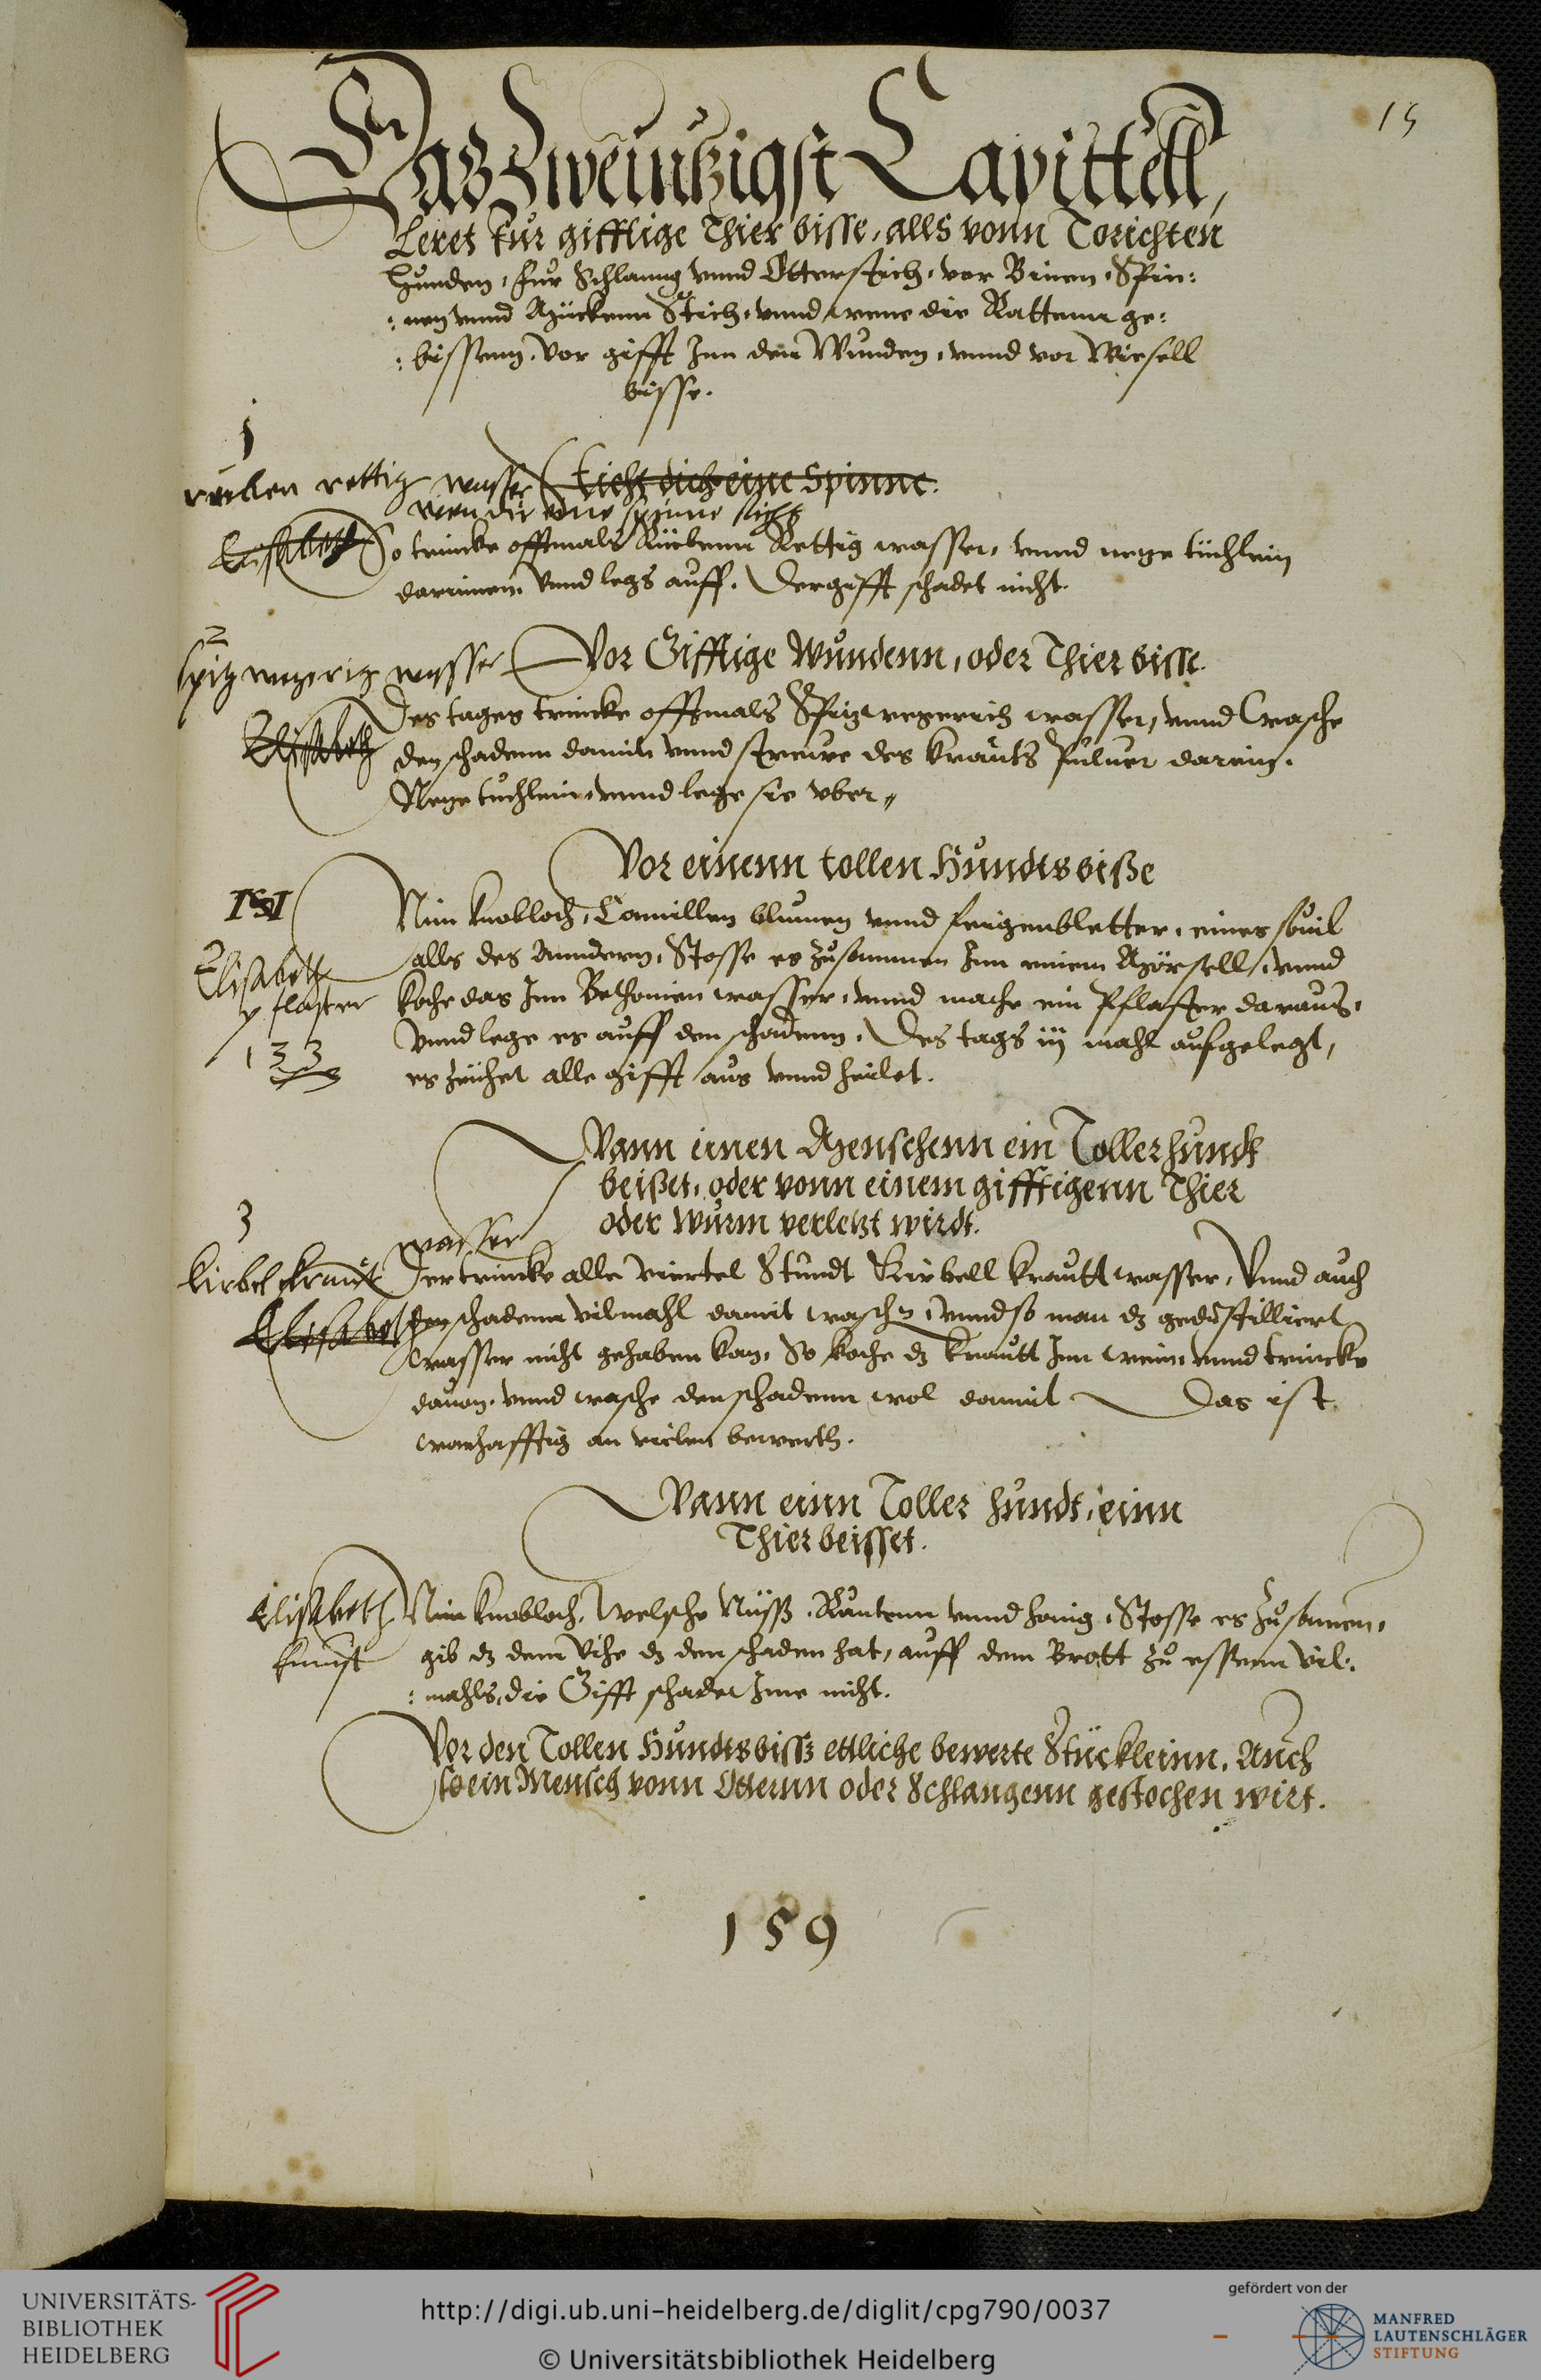 15
Das Zweintzigst Capittell,
Leret fur gifftige Thier bisse, alls vonn Torichten
Hunden, fur Schlanng vnnd Otterstich, vor Binen, Spin:
:nen vnnd Mückenn Stich, vnnd wene die Rattenn ge:
:bissenn, Vor gifft Inn den Wunden, vnnd vor Wiesell
bisse.
1
rueben rettig wasser
Sticht dich eine Spinne.
wen dir eine spinne sticht
Elisabeth
So trincke offtmals Rüebenn Rettig wasser, vnnd neze tüchlein
darinnen, Vnnd legs auff. Der gifft schadet nicht.
2
spitz wegerig wasser
Vor Gifftige Wundenn, oder Thier bisse.
Elisabeth
Des tages trincke offtmals Spizwegerich wasser, vnnd Wasche
den schadenn damit vnnd strewe des krauts Puluer darein.
Neze tuchlein vnnd lege sie vber
Vor einenn tollen Hundts biße
Elisabeth
pflaster
133
Nim knobloch, Camillen blumen vnnd feigenbletter, eines souil
alls des anndern, Stosse es zusammen Inn einem Mörsell, vnnd
koche das Inn Bethonien wasser, vnnd mache ein Pflaster daraus,
Vnnd lege es auff den schadenn. Des tags iij mahl aufgelegt,
es zeühet alle gifft aus vnnd heilet.
Wann einen Menschenn ein Toller hundt
beißet, oder vonn einem gifftigenn Thier
oder wurm verletzt wirdt.
3
kirbel kraut wasser
Elisabeth
Der trincke alle viertel Stundt Kirbell krautt wasser, Vnnd auch
den schadenn vilmahl damit wasch, vnnd so man dz gedistilliert
wasser nicht gehaben kan, So koche dz krautt Inn wein, vnnd trincke
dauon, vnnd wasche den schadenn wol damit Das ist
warhafftig an vielen bewerth.
Wann einn Toller hundt, einn
Thier beisset.
Elisabeth
kunst
Nim knobloch, Welsche Nüß, Rautenn vnnd honig, Stosse es zusamen,
gib dz dem Vihe dz den schaden hat, auff dem Brott zu essenn vil:
:mahls, die Gifft schadet Ime nicht.
Vor den Tollen Hundts biß ettliche bewerte Stückleinn. Auch
so ein Mensch vonn Otternn oder Schlangenn gestochen wirt.
159
UNIVERSITÄTS-
BIBLIOTHEK
HEIDELBERG
http://digi.ub.uni-heidelberg.de/diglit/cpg790/0037
© Universitätsbibliothek Heidelberg
gefördert von der
MANFRED
LAUTENSCHLÄGER
STIFTUNG